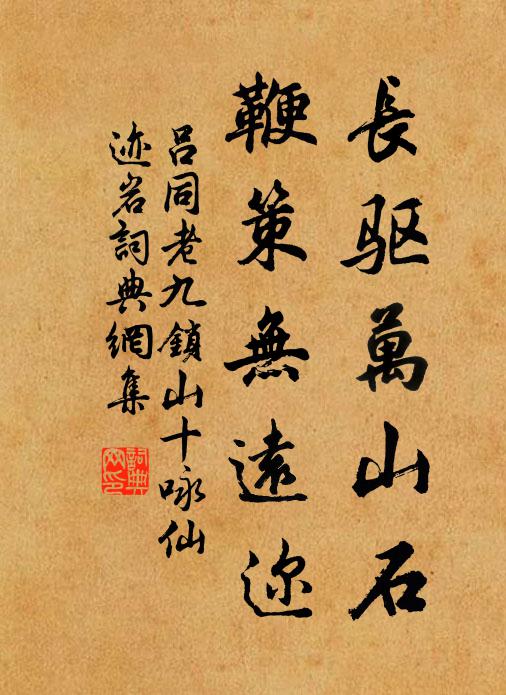 長驱萬山石
鞭策無遠迩
吕同老九鎖山十咏仙
迹岩詞典網集
詞典網印